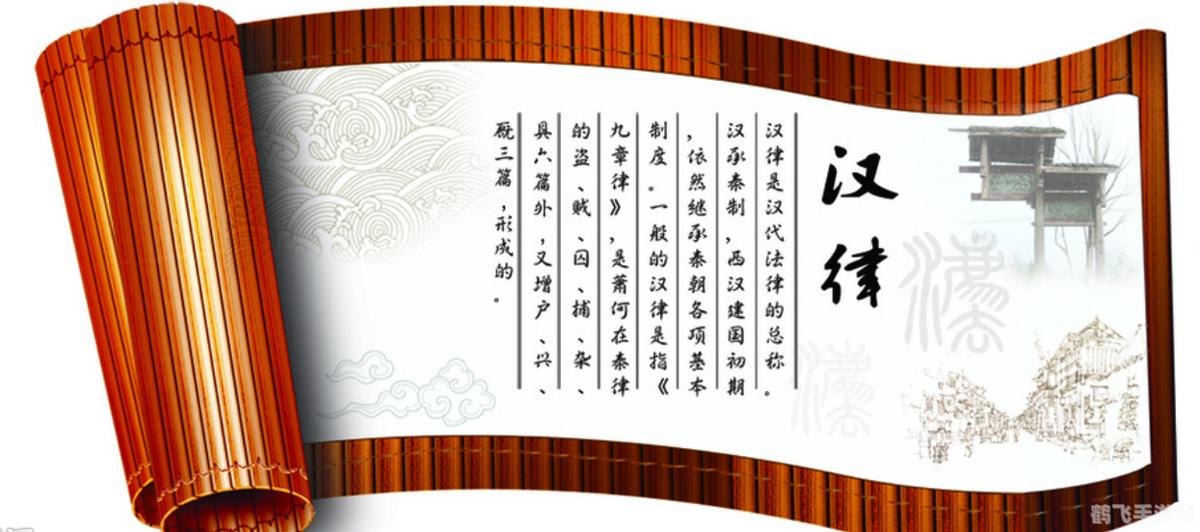 汉律
汉律是汉代法律的总称。
汉承秦制,西汉建国初期
,依然继承秦朝各项基本
制度。一般的汉律是指《
九章律》,是萧何在秦律
的盗、贼、囚、捕、杂、
具六篇外,又增户、兴、
厩三篇,形成的。
漢
漢
鹤飞手游